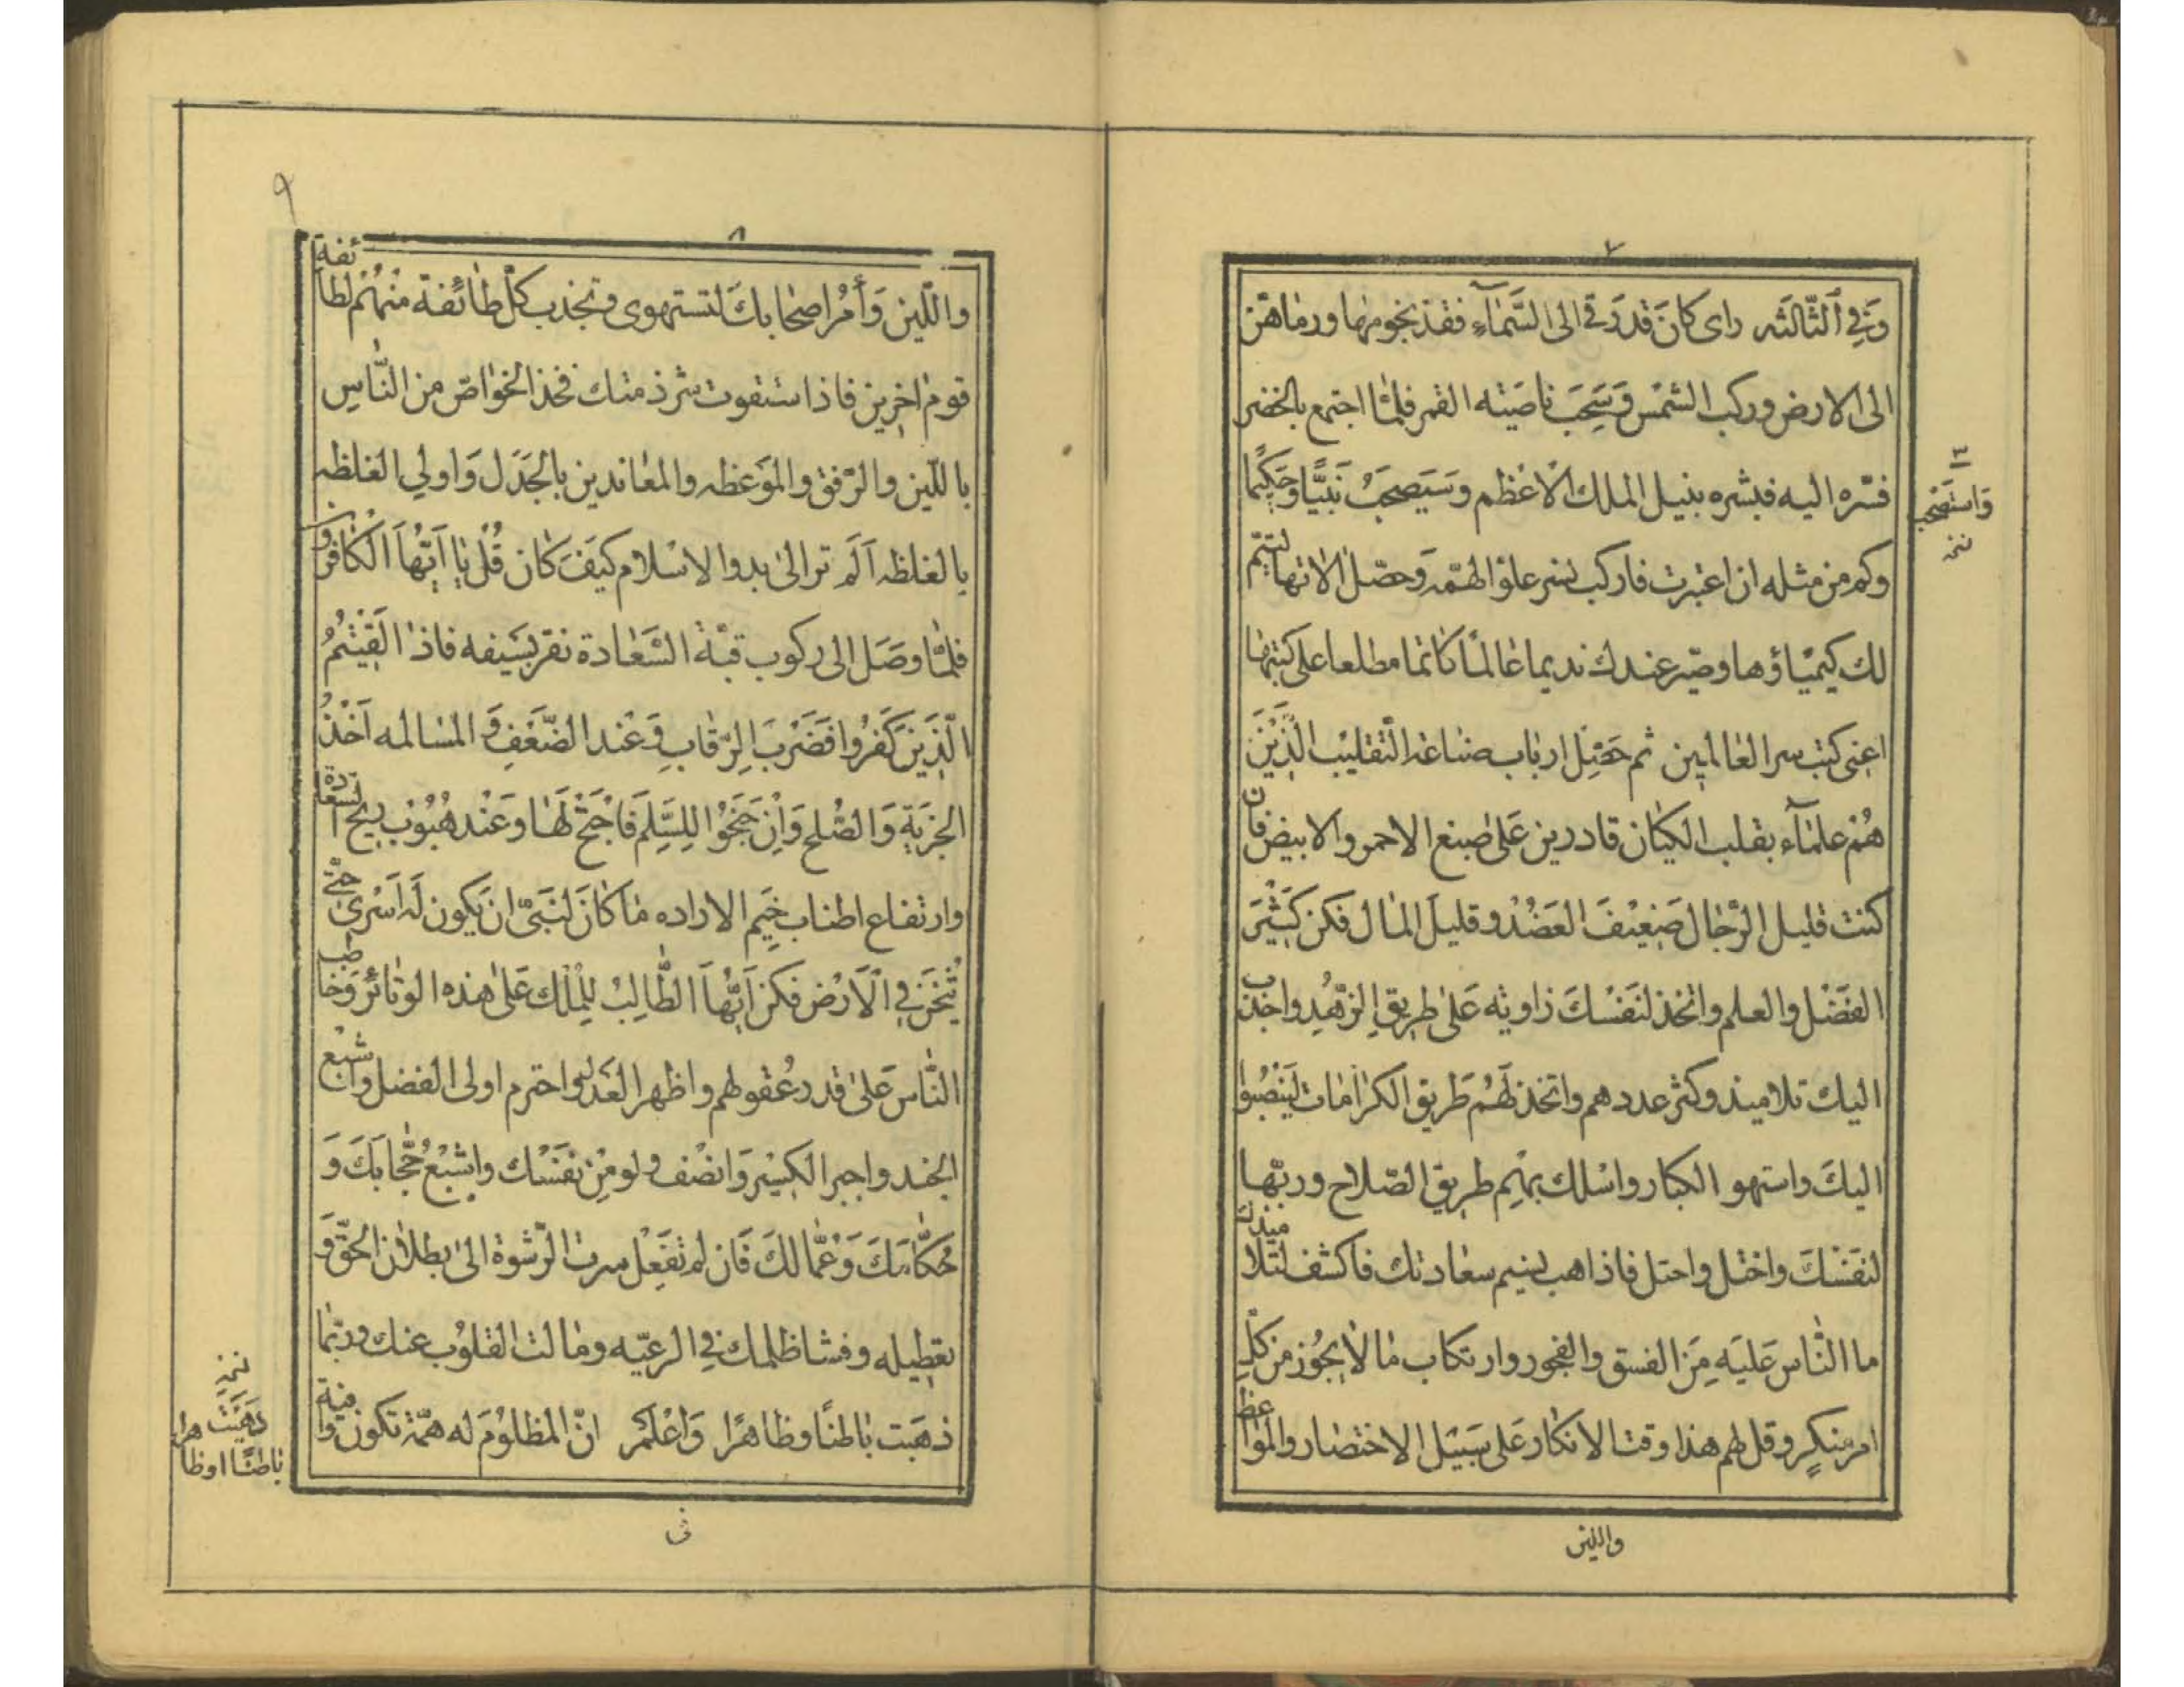 ٧
وَفِي ٱلثّالثَه رای كانَ قد رَقی الی السَّمٰآءِ فقذ نجومها ورماهن
الی الارض وركب الشمْس وَسَحِبَ ناصَيته القمر فلمّا اجتمع بالخضر
فسّره اليه فبشره بنيل الملك الْاَعْظم وسَيَصحَبُ نَبيًّا وحَكِيمًا
٣
وَاستَصْحب
نخه
وكم من مثله ان اعتبرت فاركب نسر علوّ الهمّه وَحصّل الاٰتها ليتم
لك كيمْيٰاؤها وصيّر عندك نديما عٰالمًا كاتما مطلعا علی كتبها
اعنی كتب سر العٰالمين ثم حَصِّل اربٰاب صنٰاعة التقليب الَّذينَ
هُمْ علمٰآء بقلب الكيٰان قادرين عَلی صبغ الاحمر والابيض فان
كنت قليل الرّجٰال ضَعِيْفَ العَضُدْ و قليلَ المٰال فكن كَثيْرَ
الفَضْل والعلم واتخذ لنَفْسْكَ زاويَه عَلیٰ طرِيقِ الزهْدِ واجذب
اليك تلاميذ وكثّر عددهم واتخذ لَهُمْ طَريق الكرٰامٰات لِيَنْصُبوا
اليكَ واستهو الكبٰار واسْلك بهْم طرِيق الصّلاح وربّها
لنفَسْكَ واختل واحتل فاذا هب نسيم سعٰادتك فاكشف لتلاميذك
ما النّٰاس عَليَه مِنَ الفسق والفجور وارتكاب مٰا لاٰ يجُوز من كلِّ
امر منكرٍ وقل لهم هذا وقت الانكٰار عَلی سَبيْل الاختصٰار والموٰاعظ
واللين
٩
٨
واللّين وَأمُر اصحٰابكَ لتستهوی وتجذب كلّ طٰائفة منهُمْ لطائفة
قوم اخرين فاذا ستقوت شرذمتك فخذ الخوٰاصّ من النّٰاسِ
باللّين والرّفق والمَوعظه والمعٰاندين بالجَدَل وَاولي الغلظه
بالغلظه اَلَم تر الیٰ بدوالاسْلام كيَفَ كٰان قُلْ يٰا اَيّهُا الْكٰافرُون
فلمّٰا وصَل الی ركوب قبّة السَّعٰادة نقر بسَيفه فاذٰا لَقِيْتُمُ
الَّذِينَ كَفَرُوا فَضَرْبَ الرّقٰابِ وَعْند الضّعْفِ وَالمسٰالمه اَخْذُ
الجِزيَةِ وَالصُّلح وَاِنْ جَنَحُوا لِلِسَّلِمَ فَاجْنَحْ لَهٰا وَعَنْد هُبُوْب ريح السّعٰادة
وارتفاع اطنٰاب خِيَم الاراده مٰا كٰانَ لنَبیّ ان يَكون لَه اَسْری حَتّٰی
يُثخنَ فِي الْاَرْض فكن اَيّهَُا الطّٰالِبُ لِلْملك عَلیٰ هذه الوتٰائر وَخٰاطب
النّٰاس عَلیٰ قدر عُقولهم واظهر العَدْل واحترم اولی الفضل واشبْع
الجند واجبر الكسِيْر وَانصْف ولو مِنْ نفَسْك واشْبْع حُجّٰابَكَ وَ
حُكّٰامَكَ وَعُمّٰالكَ فَان لم تَفَعِلْ سرت الرّشوة الیٰ بطلاٰن الحقّ وَ
تعَطِيله وفشا ظلمك فِي الرعيّه ومٰالت القلوُب عنك وربّمٰا
ذهَبَت بٰاطنًا وظاهرًا وَاعْلَمْ انّ المظلوُمَ له همّة تكون وافية
نخه
ذهَبَتْ
بٰاطنًا اوظاهرا
فی